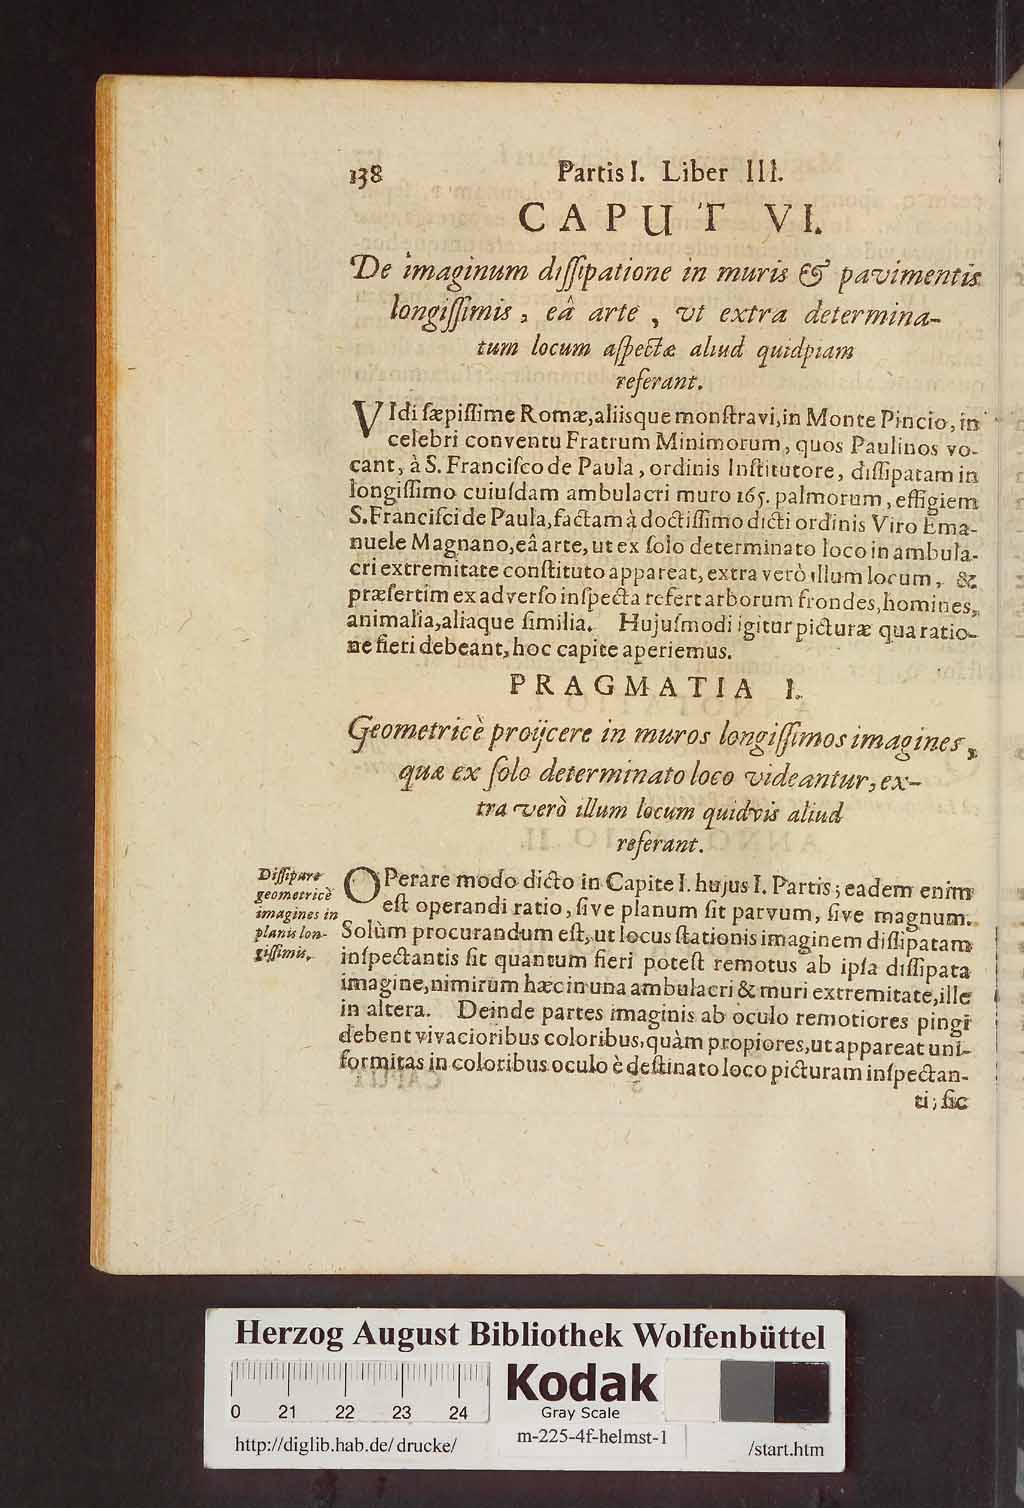 138 Partis I. Liber III.
CAPUT VI.
De imaginum dissipatione in muris & pavimentis
longiſſimis, eâ arte, vt extra determina-
tum locum aſpectæ aliud quidpiam
referant.
VIdi sæpiſſime Romæ, aliisque monſtravi, in Monte Pincio, in
celebri conventu Fratrum Minimorum, quos Paulinos vo-
cant, à S. Franciſco de Paula, ordinis Inſtitutore, diſſipatam in
longiſſimo cuiuſdam ambulacri muro 165. palmorum, effigiem
S. Franciſci de Paula, factam à doctiſſimo dicti ordinis Viro Ema-
nuele Magnano, eâ arte, ut ex ſolo determinato loco in ambula-
cri extremitate conſtituto appareat, extra verò illum locum, &
præſertim ex adverſo inſpecta refert arborum frondes, homines,
animalia, aliaque ſimilia. Hujuſmodi igitur picturæ qua ratio-
ne fieri debeant, hoc capite aperiemus.
PRAGMATIA I.
Geometricè proijcere in muros longiſſimos imagines,
quæ ex ſolo determinato loco videantur, ex-
tra verò illum locum quidvis aliud
referant.
Diſſipare
geometricè
imagines in
planis lon-
giſſimis.
OPerare modo dicto in Capite I. hujus I. Partis; eadem enim
eſt operandi ratio, ſive planum ſit parvum, ſive magnum.
Solùm procurandum eſt, ut locus ſtationis imaginem diſſipatam
inſpectantis ſit quantum fieri poteſt remotus ab ipſa diſſipata
imagine, nimirùm hæc in una ambulacri & muri extremitate, ille
in altera. Deinde partes imaginis ab oculo remotiores pingi
debent vivacioribus coloribus, quàm propiores, ut appareat uni-
formitas in coloribus oculo è deſtinato loco picturam inſpectan-
ti; ſic
Herzog August Bibliothek Wolfenbüttel
0 21 22 23 24
Kodak
Gray Scale
http://diglib.hab.de/drucke/ m-225-4f-helmst-1 /start.htm